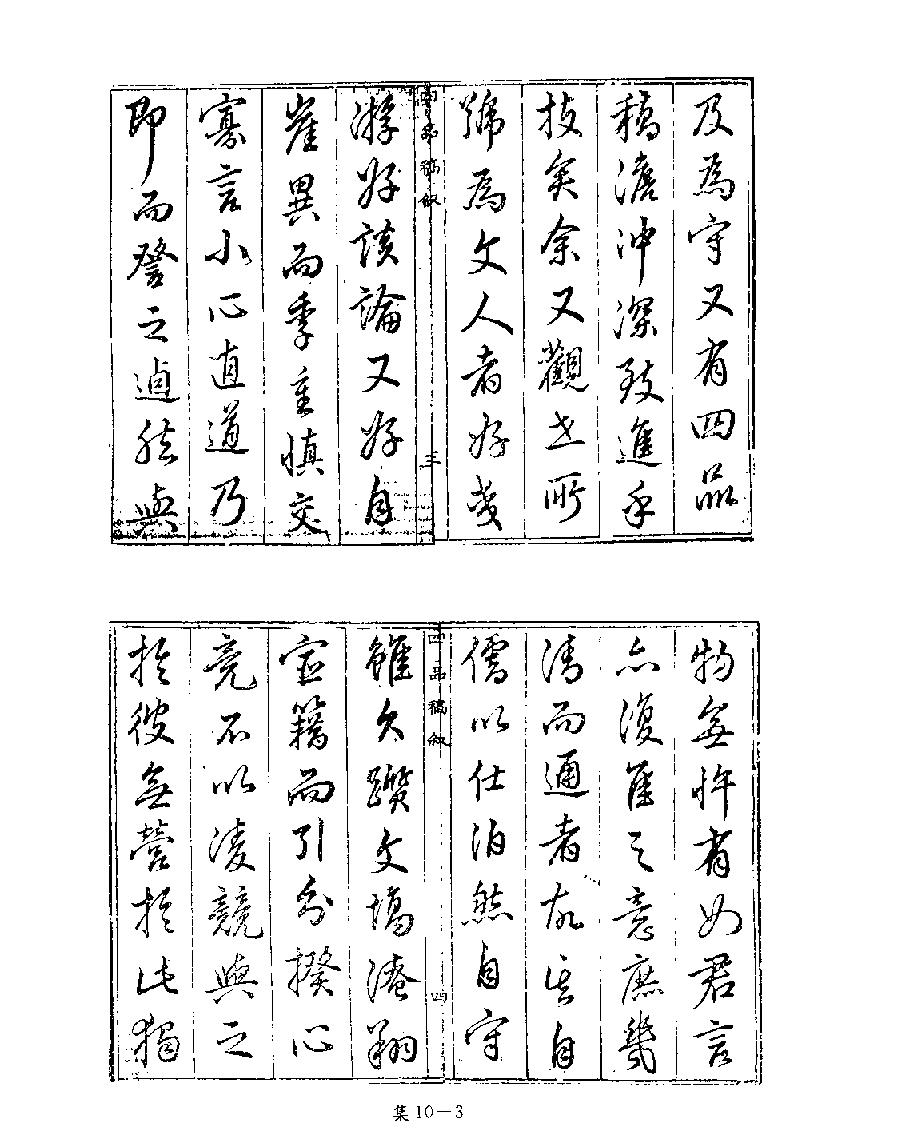 及為守又有四品
稿澹沖深致進乎
技矣余又觀世所
號為文人者好交
四品稿叙
三
游好談論又好自
崔異而季重慎交
寡言小心直道乃
即而詧之逌然與
物無忤有如君言
亦復匪之意庶幾
清而通者故其自
儒以仕泊然自守
四品稿叙
四
雖久躓文場淹翔
宦籍而引分揆心
竟不以凌競與之
於彼無營於此獨
集10-3